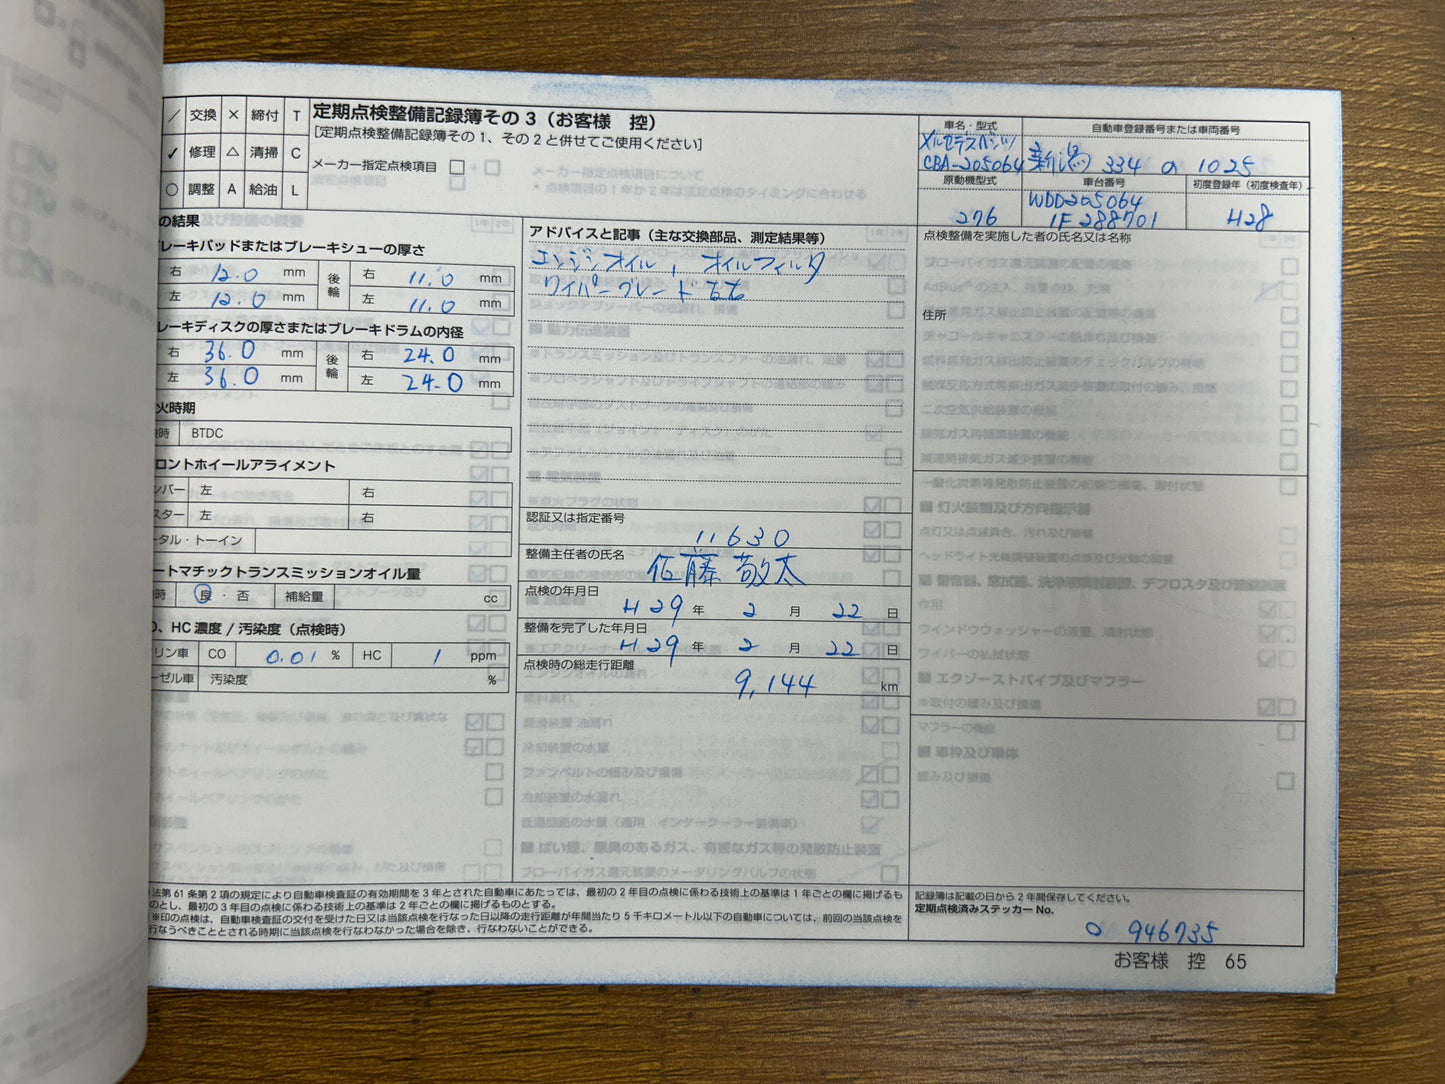 ／ 交換 × 締付 T
✓ 修理 △ 清掃 C
○ 調整 A 給油 L
定期点検整備記録簿その3（お客様 控）
［定期点検整備記録簿その1、その2と併せてご使用ください］
メーカー指定点検項目 □
車名・型式
メルセデスベンツ
CBA-205064
自動車登録番号または車両番号
新潟 334 の 1025
原動機型式
276
車台番号
WDD205064
1F288701
初度登録年（初度検査年）
H28
の結果
レーキパッドまたはブレーキシューの厚さ
右 12.0 mm 後輪 右 11.0 mm
左 12.0 mm 左 11.0 mm
レーキディスクの厚さまたはブレーキドラムの内径
右 36.0 mm 後輪 右 24.0 mm
左 36.0 mm 左 24.0 mm
火時期
時 BTDC
ロントホイールアライメント
ンバー 左 右
スター 左 右
ータル・トーイン
ートマチックトランスミッションオイル量
時 良・否 補給量 cc
O、HC 濃度 / 汚染度（点検時）
リン車 CO 0.01 % HC 1 ppm
ーゼル車 汚染度 %
アドバイスと記事（主な交換部品、測定結果等）
エンジンオイル, オイルフィルタ
ワイパーブレード左右
認証又は指定番号
11630
整備主任者の氏名
佐藤 敬太
点検の年月日
H29 年 2 月 22 日
整備を完了した年月日
H29 年 2 月 22 日
点検時の総走行距離
9,144 km
点検整備を実施した者の氏名又は名称
住所
法第 61 条第 2 項の規定により自動車検査証の有効期間を 3 年とされた自動車にあたっては、最初の 2 年目の点検に係わる技術上の基準は 1 年ごとの欄に掲げるも
のとし、最初の 3 年目の点検に係わる技術上の基準は 2 年ごとの欄に掲げるものとする。
※印の点検は、自動車検査証の交付を受けた日又は当該点検を行なった日以降の走行距離が年間当たり 5 千キロメートル以下の自動車については、前回の当該点検を
行なうべきこととされる時期に当該点検を行なわなかった場合を除き、行なわないことができる。
記録簿は記載の日から 2 年間保存してください。
定期点検済みステッカー No.
0 946735
お客様 控 65